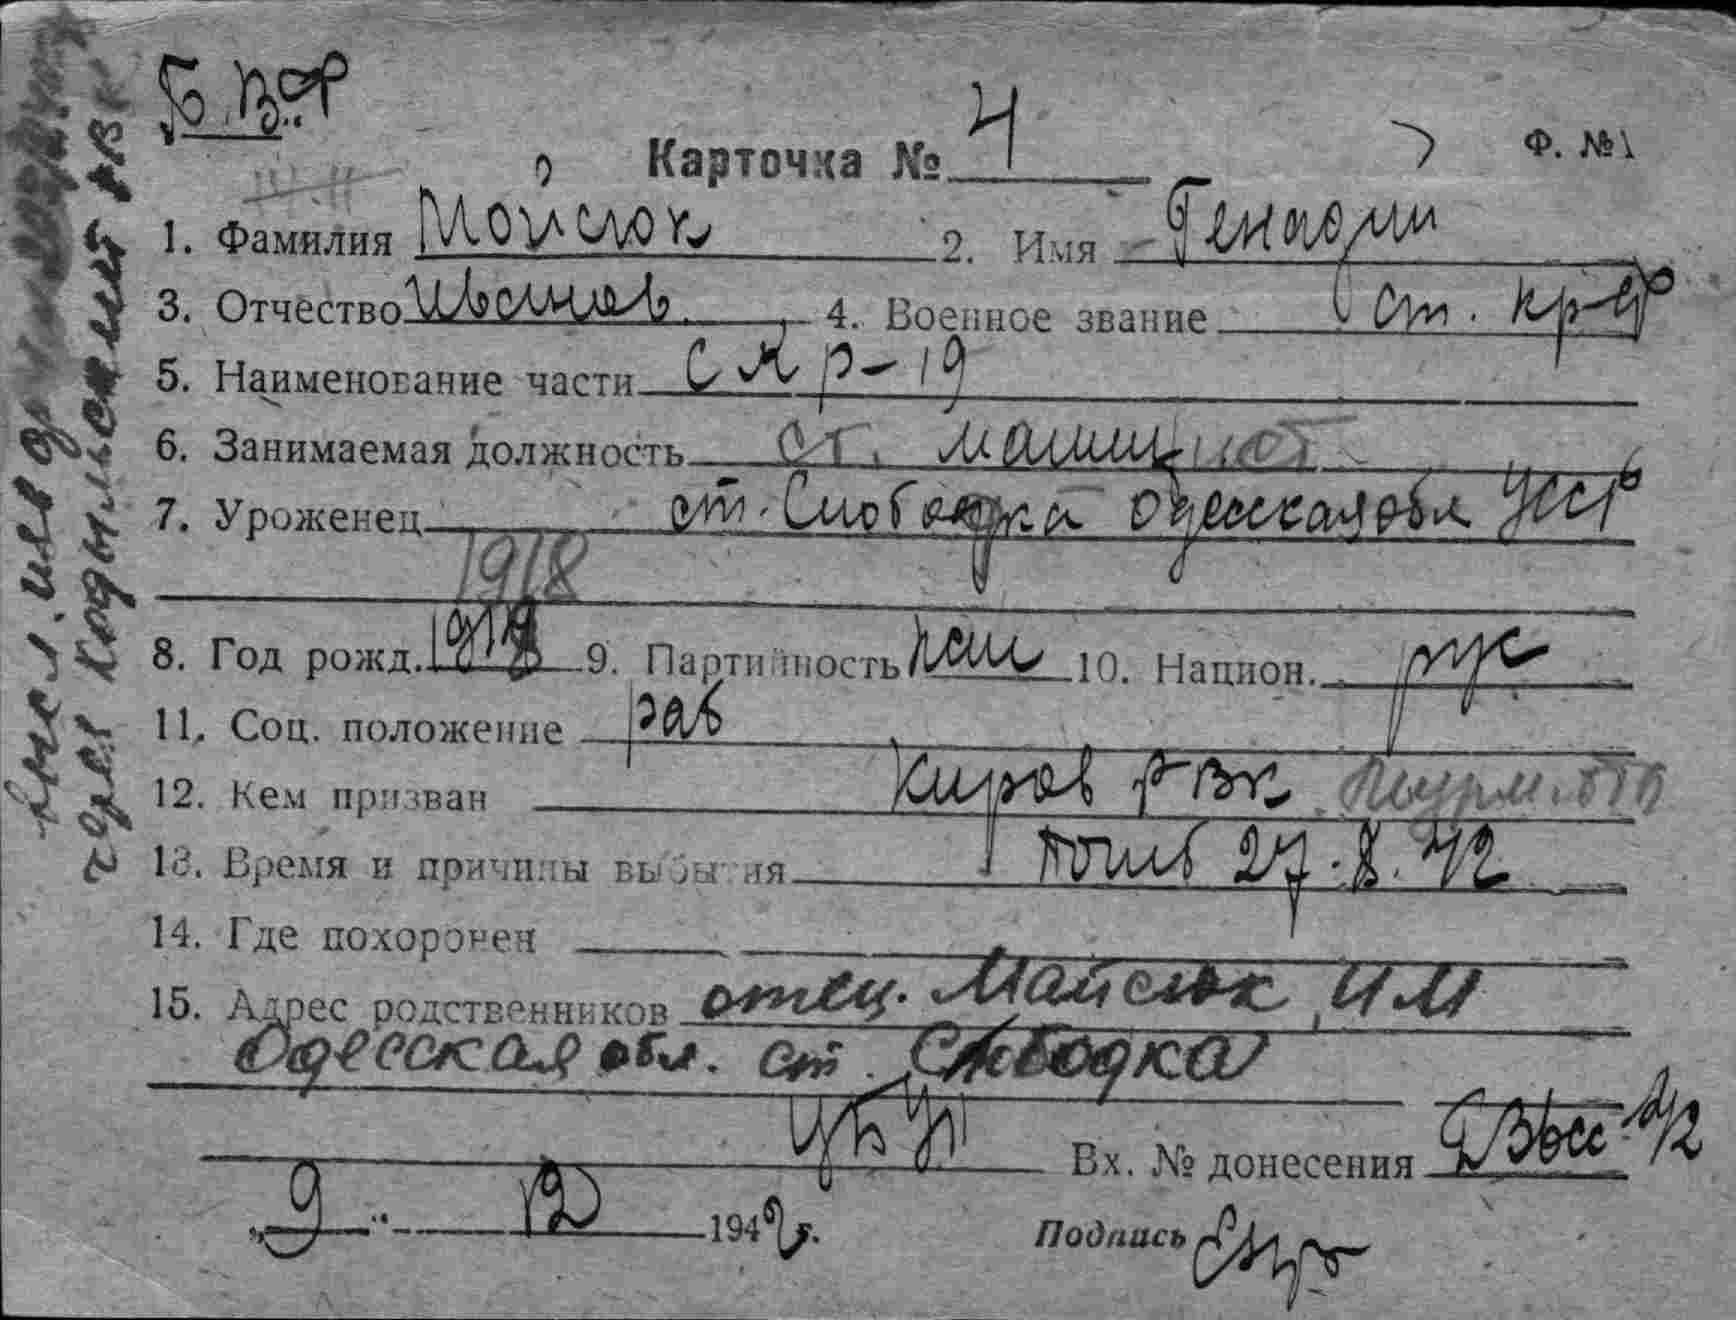 Б. ВФ
Карточка № 4 Ф. №1
1. Фамилия Мойсюк 2. Имя Генадий
3. Отчество Иванов. 4. Военное звание ст. кр-ф
5. Наименование части СКр-19
6. Занимаемая должность ст. машинист
7. Уроженец ст. Слободка Одесская обл УССР
1918
8. Год рожд. 9. Партийность 10. Национ. рус
11. Соц. положение раб
12. Кем призван Киров РВК
13. Время и причины выбытия Погиб 27.8.42
14. Где похоронен
15. Адрес родственников отец. Майсюк ИМ
Одесская обл. ст. Слободка
Вх. № донесения
„9“ 12 1942 г. Подпись
чрез Кодымский РВК